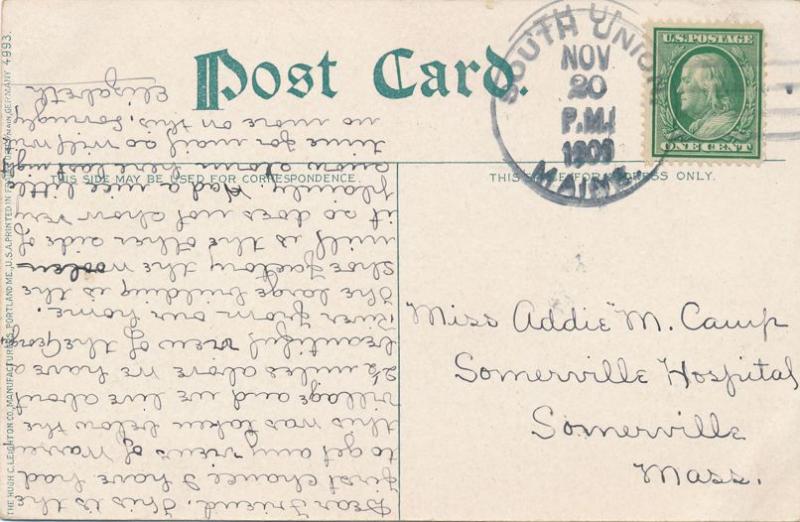 Post Card.
THIS SIDE MAY BE USED FOR CORRESPONDENCE.
THIS SIDE FOR ADDRESS ONLY.
SOUTH UNION
NOV
20
P.M.
1909
MAINE
U.S. POSTAGE
ONE CENT
Miss Addie M. Camp
Somerville Hospital
Somerville
Mass.
Dear Friend. This is the
first chance I have had
to get any views of Warren
this was taken below the
village and we live about
2½ miles above we have a
beautiful view of the Georges
River from our home.
The large building is the
shoe factory the woolen
mill is the other side of
it so does not show very
plainly. Had a nice little
snow storm here last night
time for mail so will write
no more on this. Lovingly
Elizabeth
THE HUGH C. LEIGHTON CO., MANUFACTURERS, PORTLAND, ME., U.S.A. PRINTED IN GERMANY 4993.